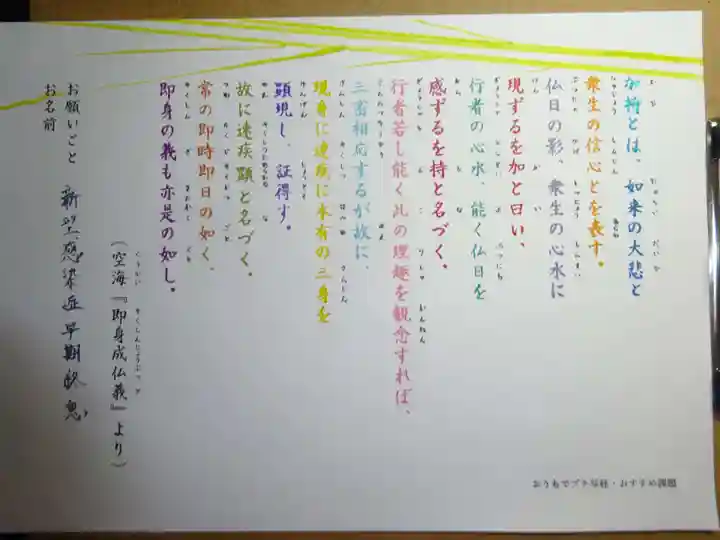 加持とは、如来の大悲と
衆生の信心とを表す。
仏日の影、衆生の心水に
現ずるを加と曰い、
行者の心水、能く仏日を
感ずるを持と名づく。
行者若し能く此の理趣を観念すれば、
三密相応するが故に、
現身に速疾に本有の三身を
顕現し、証得す。
故に速疾顕と名づく。
常の即時即日の如く、
即身の義も亦是の如し。
(空海『即身成仏義』より)
お願いごと 新型感染症早期終息
お名前
おうちでプチ写経・おすすめ課題